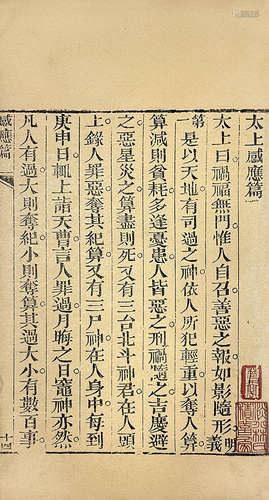 太上感應篇
太上曰禍福無門惟人自召善惡之報如影隨形
明義
第一
是以天地有司過之神依人所犯輕重以奪人算
算減則貧耗多逢憂患人皆惡之刑禍隨之吉慶避
之惡星災之算盡則死又有三台北斗神君在人頭
上錄人罪惡奪其紀算又有三尸神在人身中每到
庚申日輒上詣天曹言人罪過月晦之日竈神亦然
凡人有過大則奪紀小則奪算其過大小有數百事
感應篇
十四